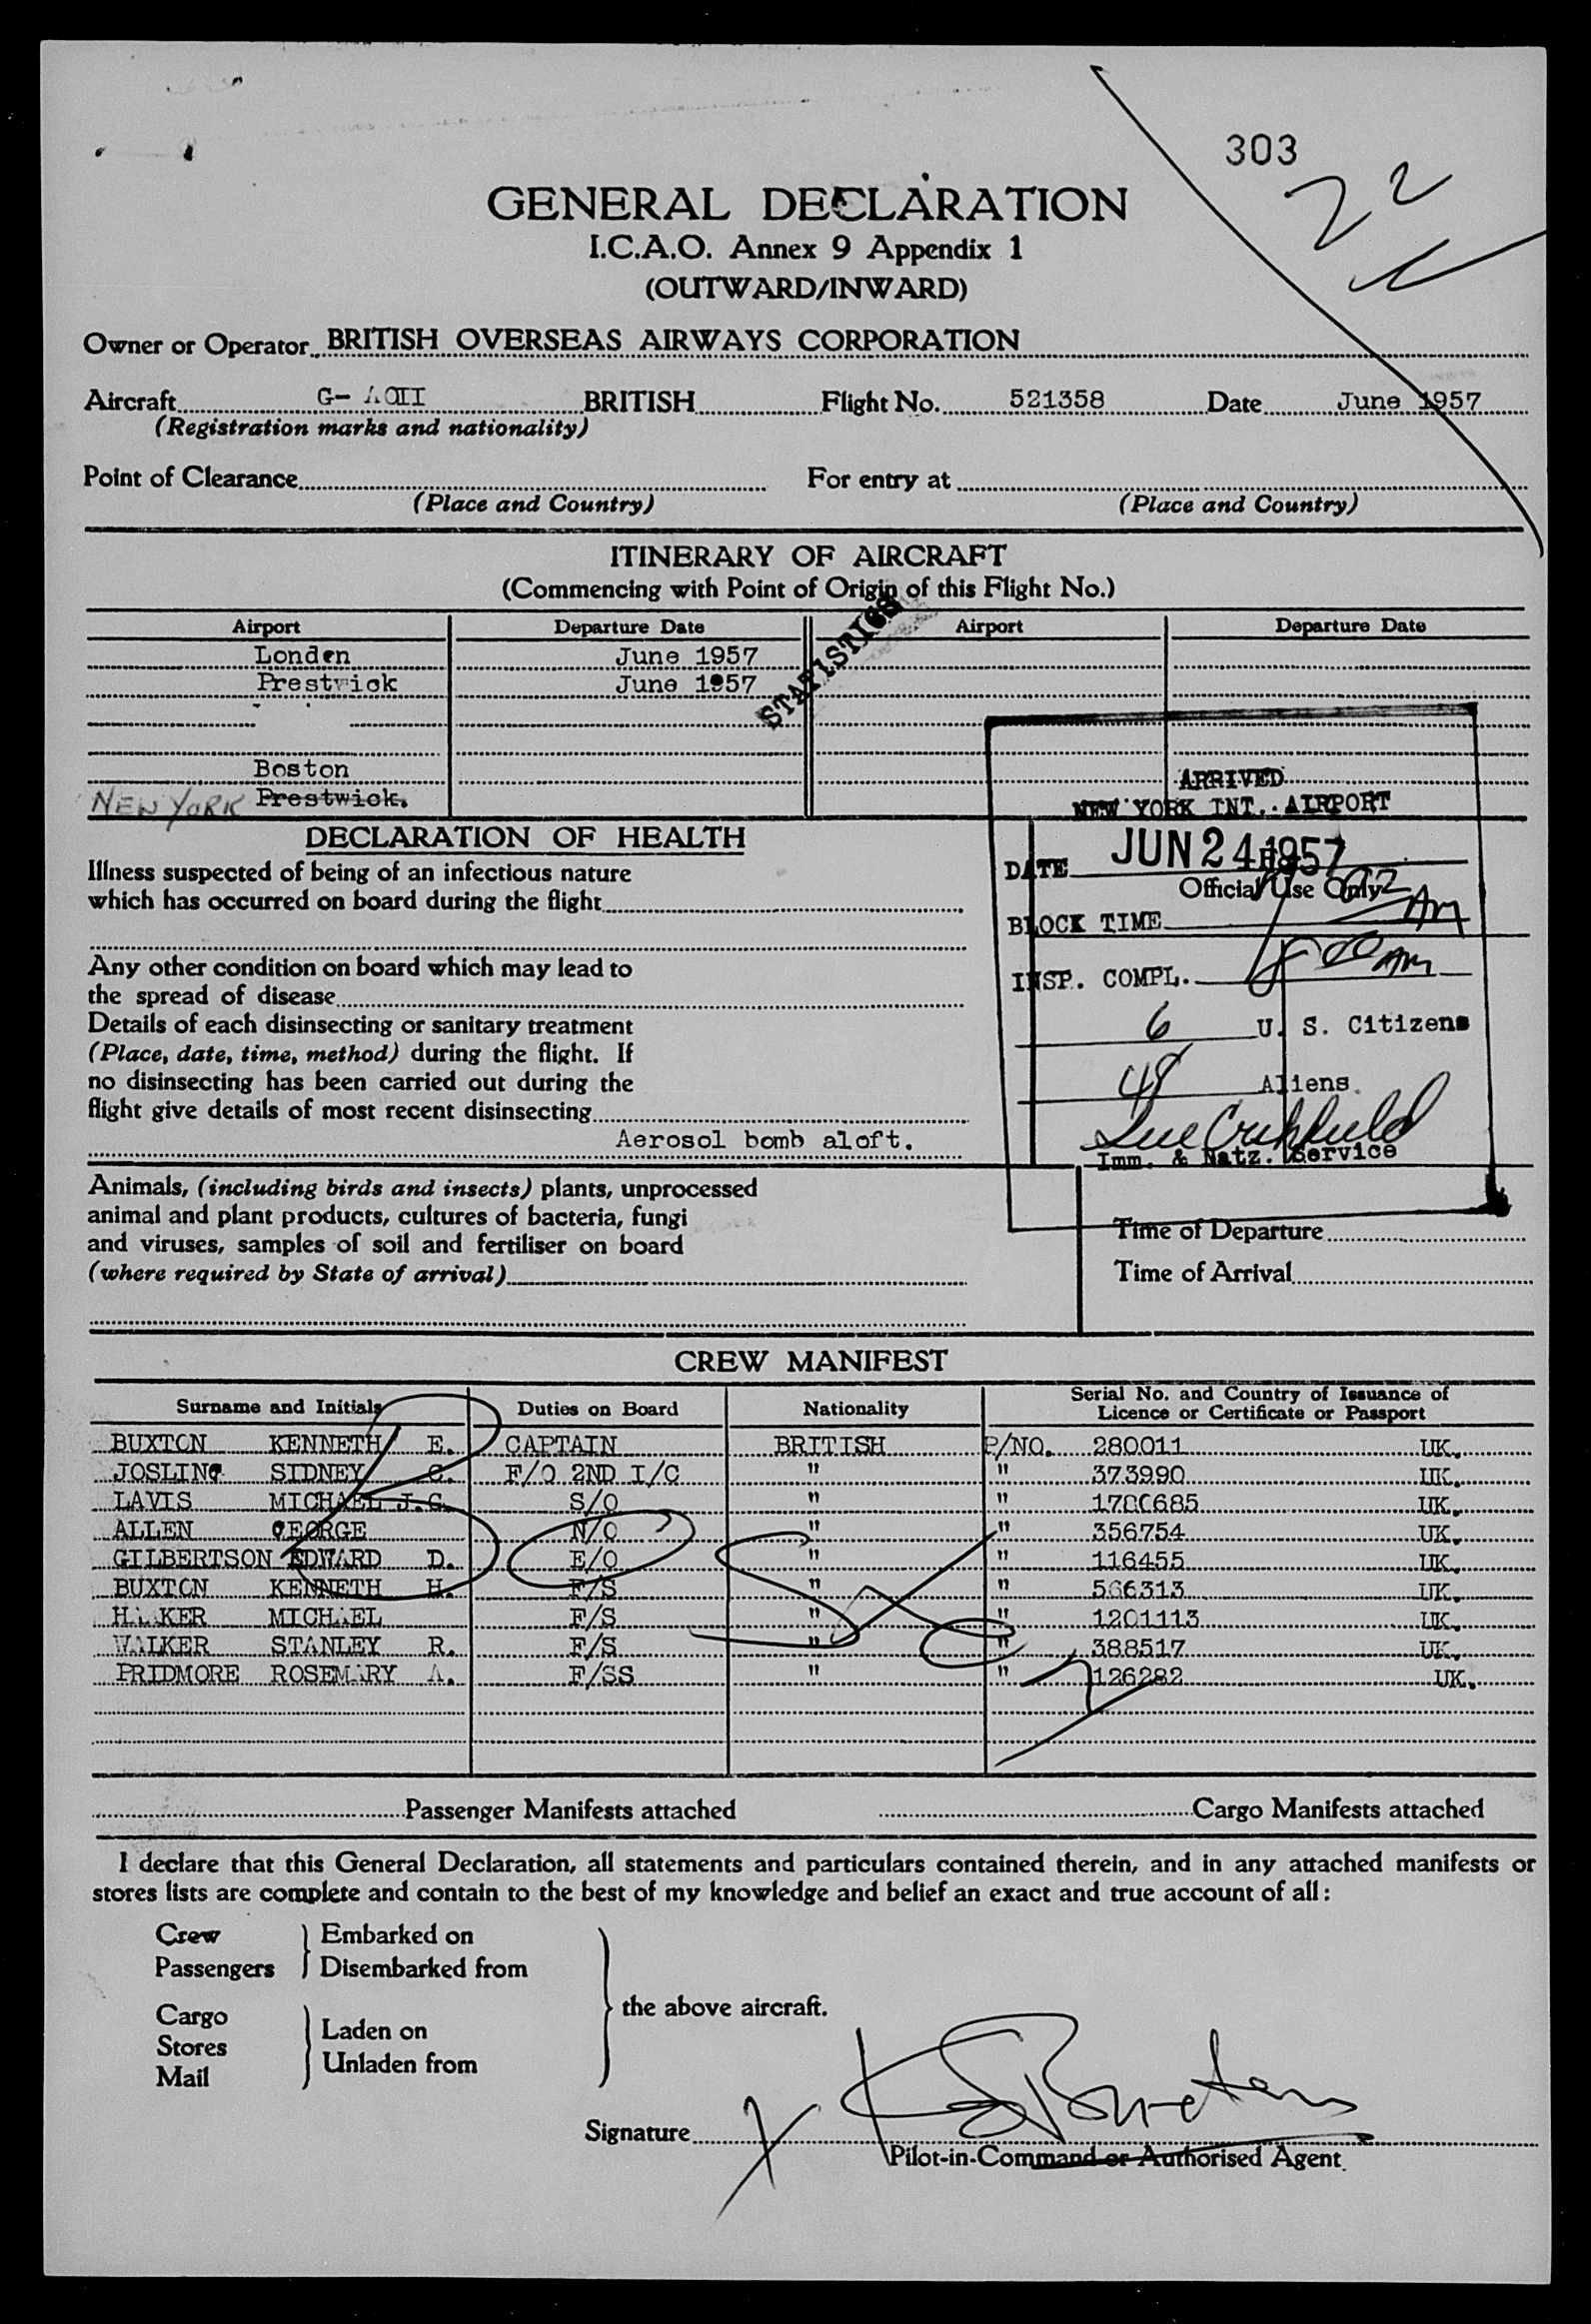 303
22
GENERAL DECLARATION
I.C.A.O. Annex 9 Appendix 1
(OUTWARD/INWARD)
Owner or Operator BRITISH OVERSEAS AIRWAYS CORPORATION
Aircraft G- AOII BRITISH Flight No. 521358 Date June 1957
(Registration marks and nationality)
Point of Clearance For entry at
(Place and Country) (Place and Country)
ITINERARY OF AIRCRAFT
(Commencing with Point of Origin of this Flight No.)
STATISTICS
Airport Departure Date Airport Departure Date
London June 1957
Prestwick June 1957
Boston
NEW YORK Prestwick.
ARRIVED
NEW YORK INT. AIRPORT
DATE JUN 24 1957
Official Use Only
BLOCK TIME AM
INSP. COMPL. 8 00 AM
6 U. S. Citizens
48 Aliens
Imm. & Natz. Service
DECLARATION OF HEALTH
Illness suspected of being of an infectious nature
which has occurred on board during the flight
Any other condition on board which may lead to
the spread of disease
Details of each disinsecting or sanitary treatment
(Place, date, time, method) during the flight. If
no disinsecting has been carried out during the
flight give details of most recent disinsecting
Aerosol bomb aloft.
Animals, (including birds and insects) plants, unprocessed
animal and plant products, cultures of bacteria, fungi
and viruses, samples of soil and fertiliser on board
(where required by State of arrival)
Time of Departure
Time of Arrival
CREW MANIFEST
Surname and Initials Duties on Board Nationality Serial No. and Country of Issuance of Licence or Certificate or Passport
BUXTON KENNETH E. CAPTAIN BRITISH P/NO. 280011 UK.
JOSLING SIDNEY C. F/O 2ND I/C " " 373990 UK.
LAVIS MICHAEL J.C. S/O " " 1706685 UK.
ALLEN GEORGE N/O " " 356754 UK.
GILBERTSON EDWARD D. E/O " " 116455 UK.
BUXTON KENNETH H. F/S " " 566313 UK.
HAKER MICHAEL F/S " " 1201113 UK.
WALKER STANLEY R. F/S " " 388517 UK.
PRIDMORE ROSEMARY A. F/SS " " 126282 UK.
Passenger Manifests attached Cargo Manifests attached
I declare that this General Declaration, all statements and particulars contained therein, and in any attached manifests or
stores lists are complete and contain to the best of my knowledge and belief an exact and true account of all:
Crew Embarked on
Passengers Disembarked from
the above aircraft.
Cargo Laden on
Stores
Mail Unladen from
Signature X K E Buxton
Pilot-in-Command or Authorised Agent.